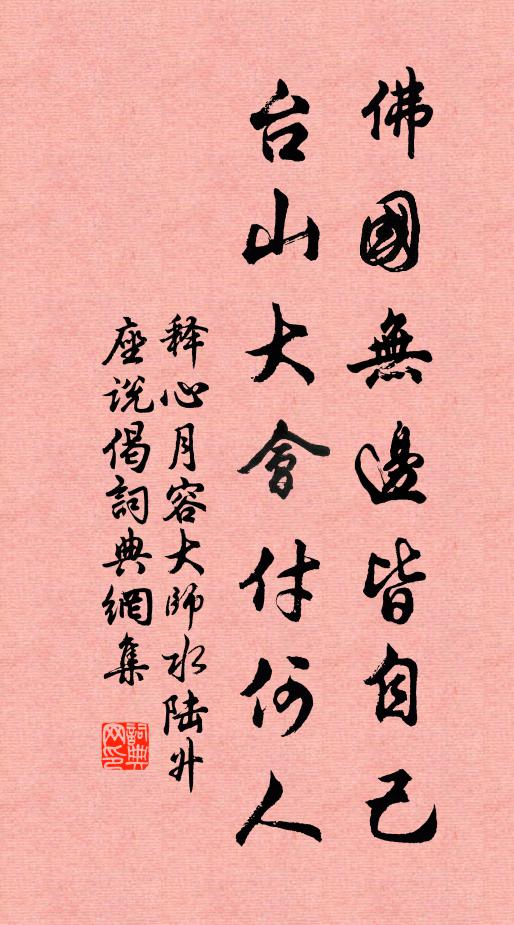 佛國無邊皆自己
台山大會付何人
释心月容大師水陆升
座说偈詞典網集
詞典网印